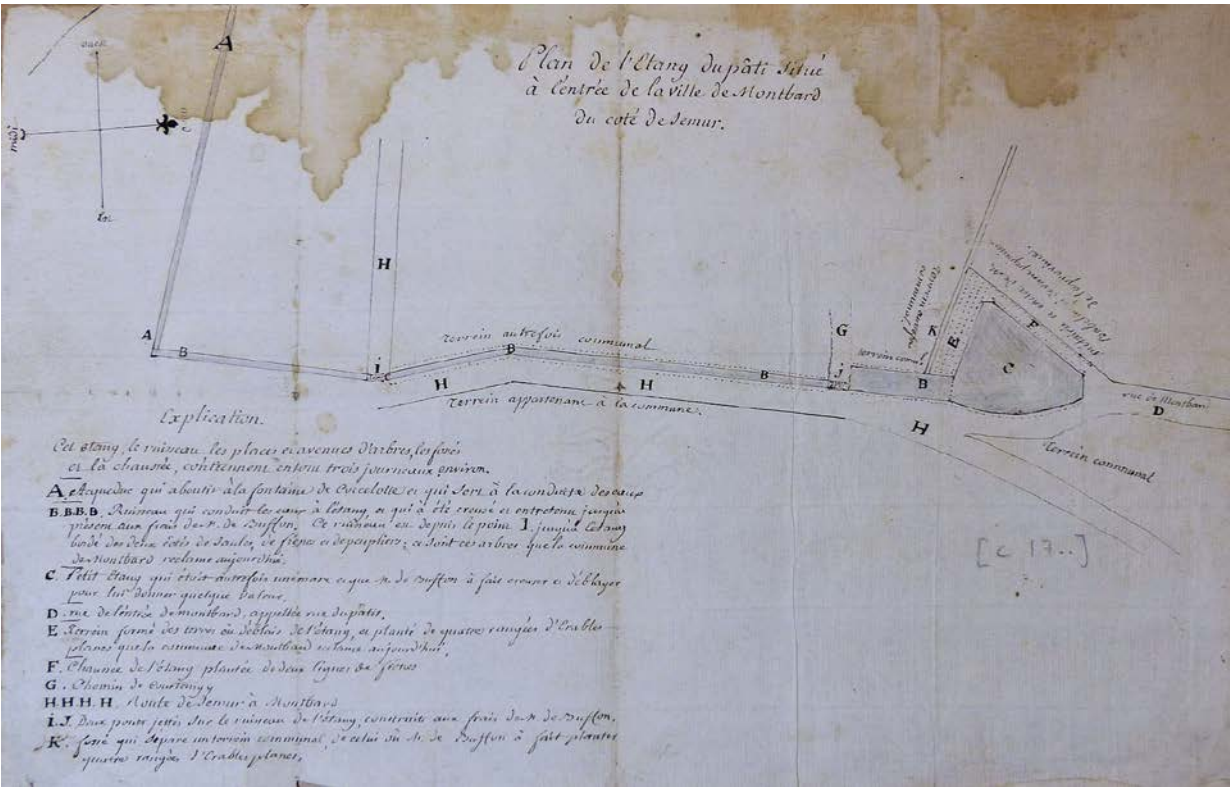 Plan de l'Etang du pâti situé
à l'entrée de la ville de Montbard
Du coté de Semur.
A
midi
H
A
B
i
terrein autrefois communal
B
H
H
B
terrein appartenant à la commune.
G
J
terrein com.l
K
E
F
C
B
H
rue de Montbard
D
terrein communal
[c 17..]
Explication.
Cet étang, le ruisseau les places et avenues d'arbres, les fossés
et la chaussée, contiennent en tout trois journeaux environ.
A. Acqueduc qui aboutit à la fontaine de et qui sert à la conduitte des eaux
B.B.B.B. Ruisseau qui conduit les eaux à l'étang, et qui à été creusé et entretenu jusqu'à
présent aux frais de M. de Buffon. Ce ruisseau est depuis le point I. jusqu'à l'étang
bordé des deux cotés de saules, de frênes et de peupliers; ce sont ces arbres que la commune
de Montbard réclame aujourd'hui.
C. Petit étang qui étoit autrefois une mare et que M. de Buffon à fait creuser et déblayer
pour lui donner quelque valeur.
D. rue de l'entrée de montbard, appellée rue du pâtis.
E Terrein formé des terres ou déblais de l'étang, et planté de quatre rangées d'Erables
planes que la commune de Montbard réclame aujourd'hui.
F. Chaussée de l'étang plantée de deux lignes de frênes
G. Chemin de
H.H.H.H. Route de Semur à Montbard
i.J. Deux ponts jettés sur le ruisseau de l'étang, construits aux frais de M. de Buffon.
K. fossé qui sépare un terrein communal, de celui où M. de Buffon à fait planter
quatre rangées d'Erables planes.